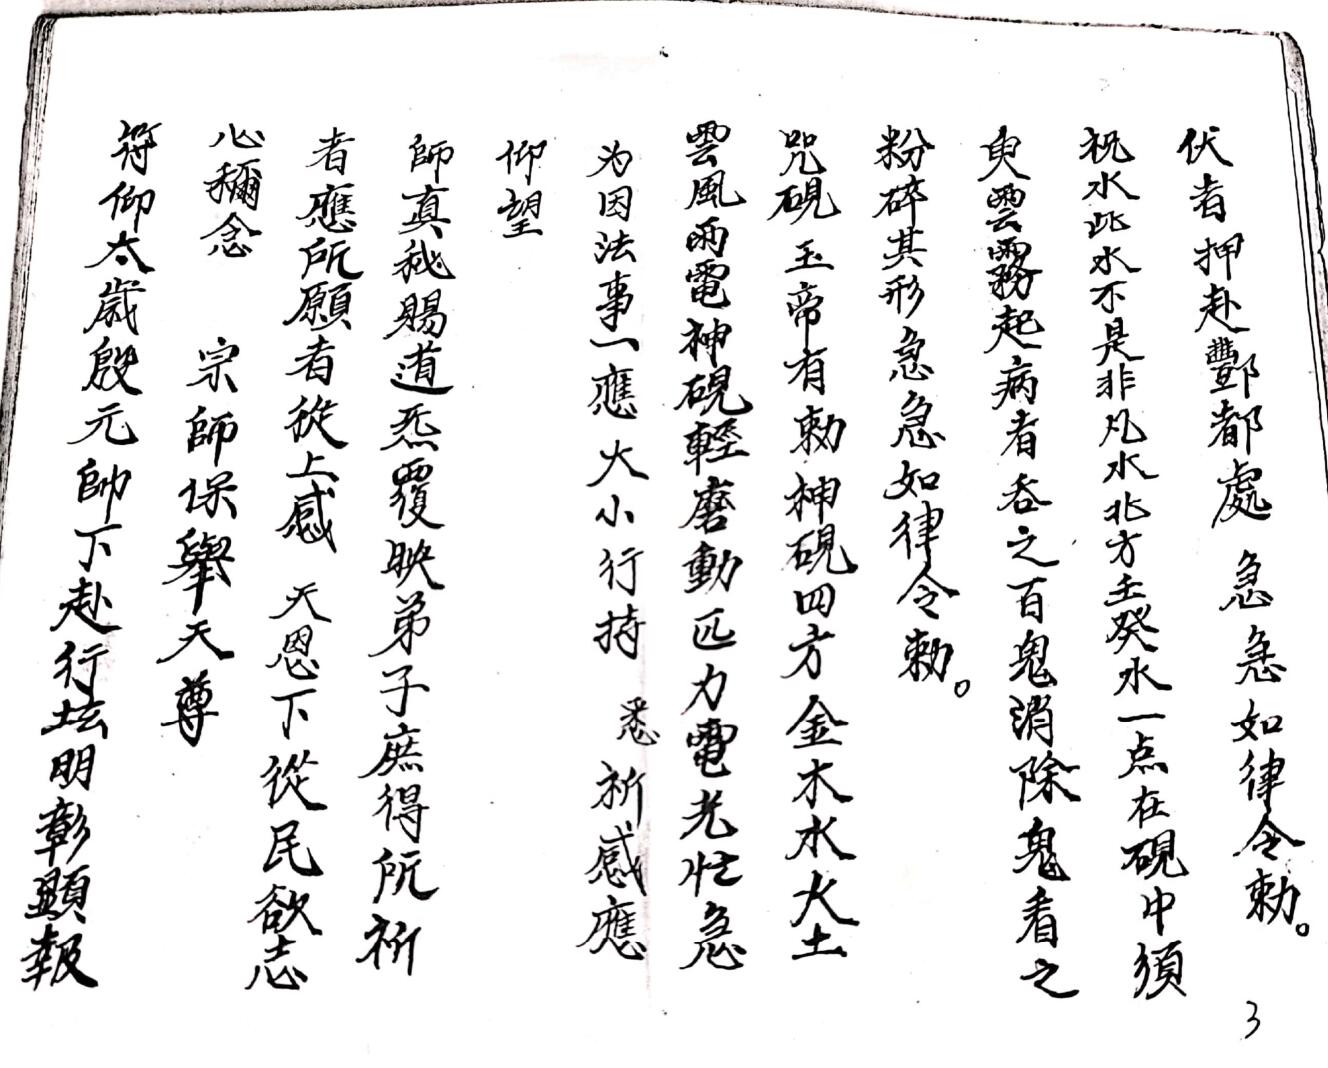 伏者押赴酆都處急急如律令勅。
祝水此水不是非凡水北方壬癸水一点在硯中須
臾雲霧起病者吞之百鬼消除鬼看之
粉碎其形急急如律令勅。
咒硯玉帝有勅神硯四方金木水火土
雲風雨電神硯輕磨動匹力電光忙急
为因法事一應大小行持悉祈感應
仰望
師真秘賜道炁覆映弟子庶得所祈
者應所願者從上感天恩下從民欲志
心稱念 宗師保舉天尊
符仰太歲殷元帥下赴行坛明彰顯報
3